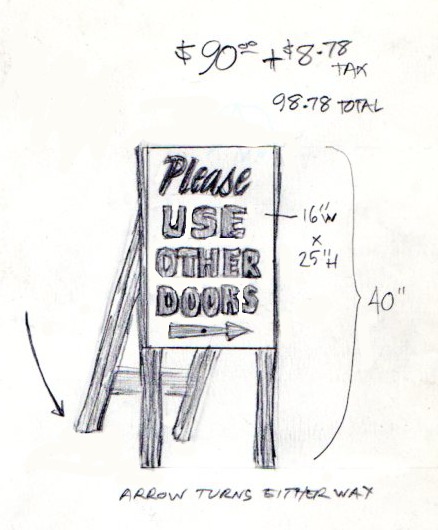 $90⁰⁰ + $8.78
TAX
98.78 TOTAL
Please
USE
OTHER
DOORS
16"W
x
25"H
40"
ARROW TURNS EITHER WAY